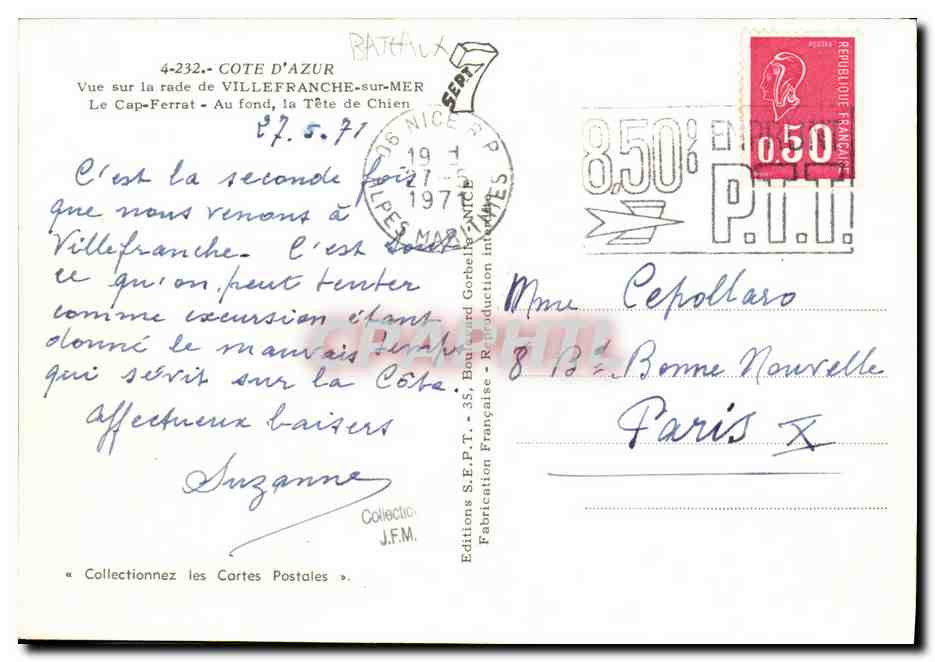 BATEAUX
4-232.- COTE D'AZUR
Vue sur la rade de VILLEFRANCHE-sur-MER
Le Cap-Ferrat - Au fond, la Tête de Chien
27.5.71
C'est la seconde fois
que nous venons à
Villefranche. C'est tout
ce qu'on peut tenter
comme excursion étant
donné le mauvais temps
qui sévit sur la Côte.
Affectueux baisers
Suzanne
Collection
J.F.M.
« Collectionnez les Cartes Postales ».
SEPT
06 NICE R.P.
19 H
27-5
1971
ALPES MARITIMES
Editions S.E.P.T. - 35, Boulevard Gorbella - NICE
Fabrication Française - Reproduction interdite
8,50%
EMPRUNT
P.T.T.
REPUBLIQUE FRANÇAISE
POSTES
0.50
Mme Cepollaro
8 Bd. Bonne Nouvelle
Paris X